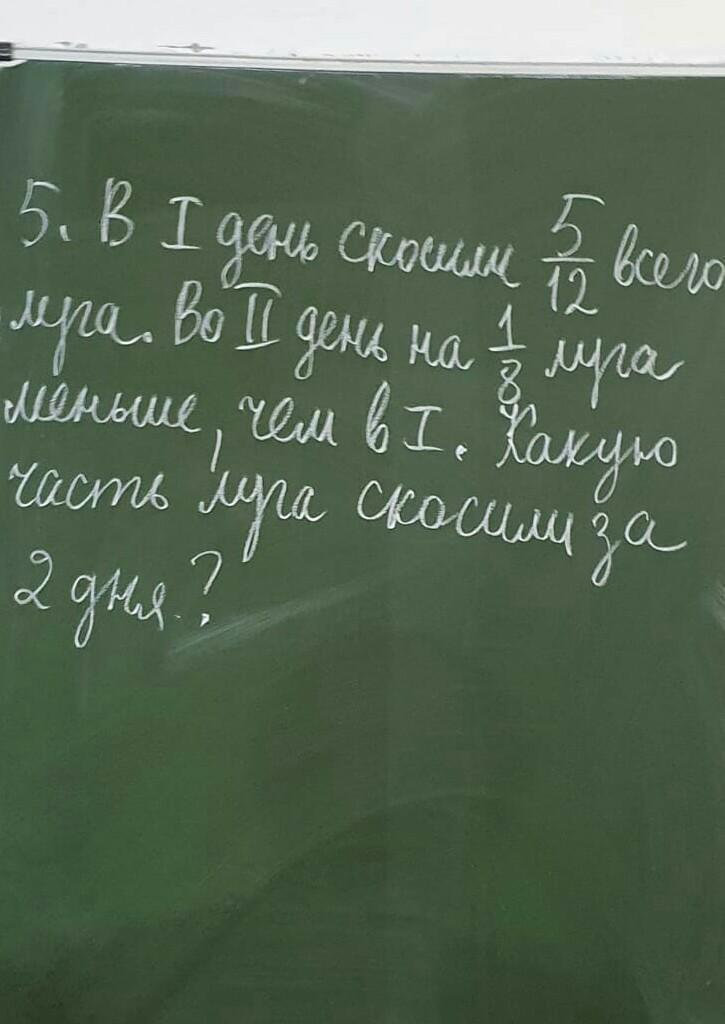 5. В I день скосили 5/12 всего
луга. Во II день на 1/8 луга
меньше, чем в I. Какую
часть луга скосили за
2 дня?